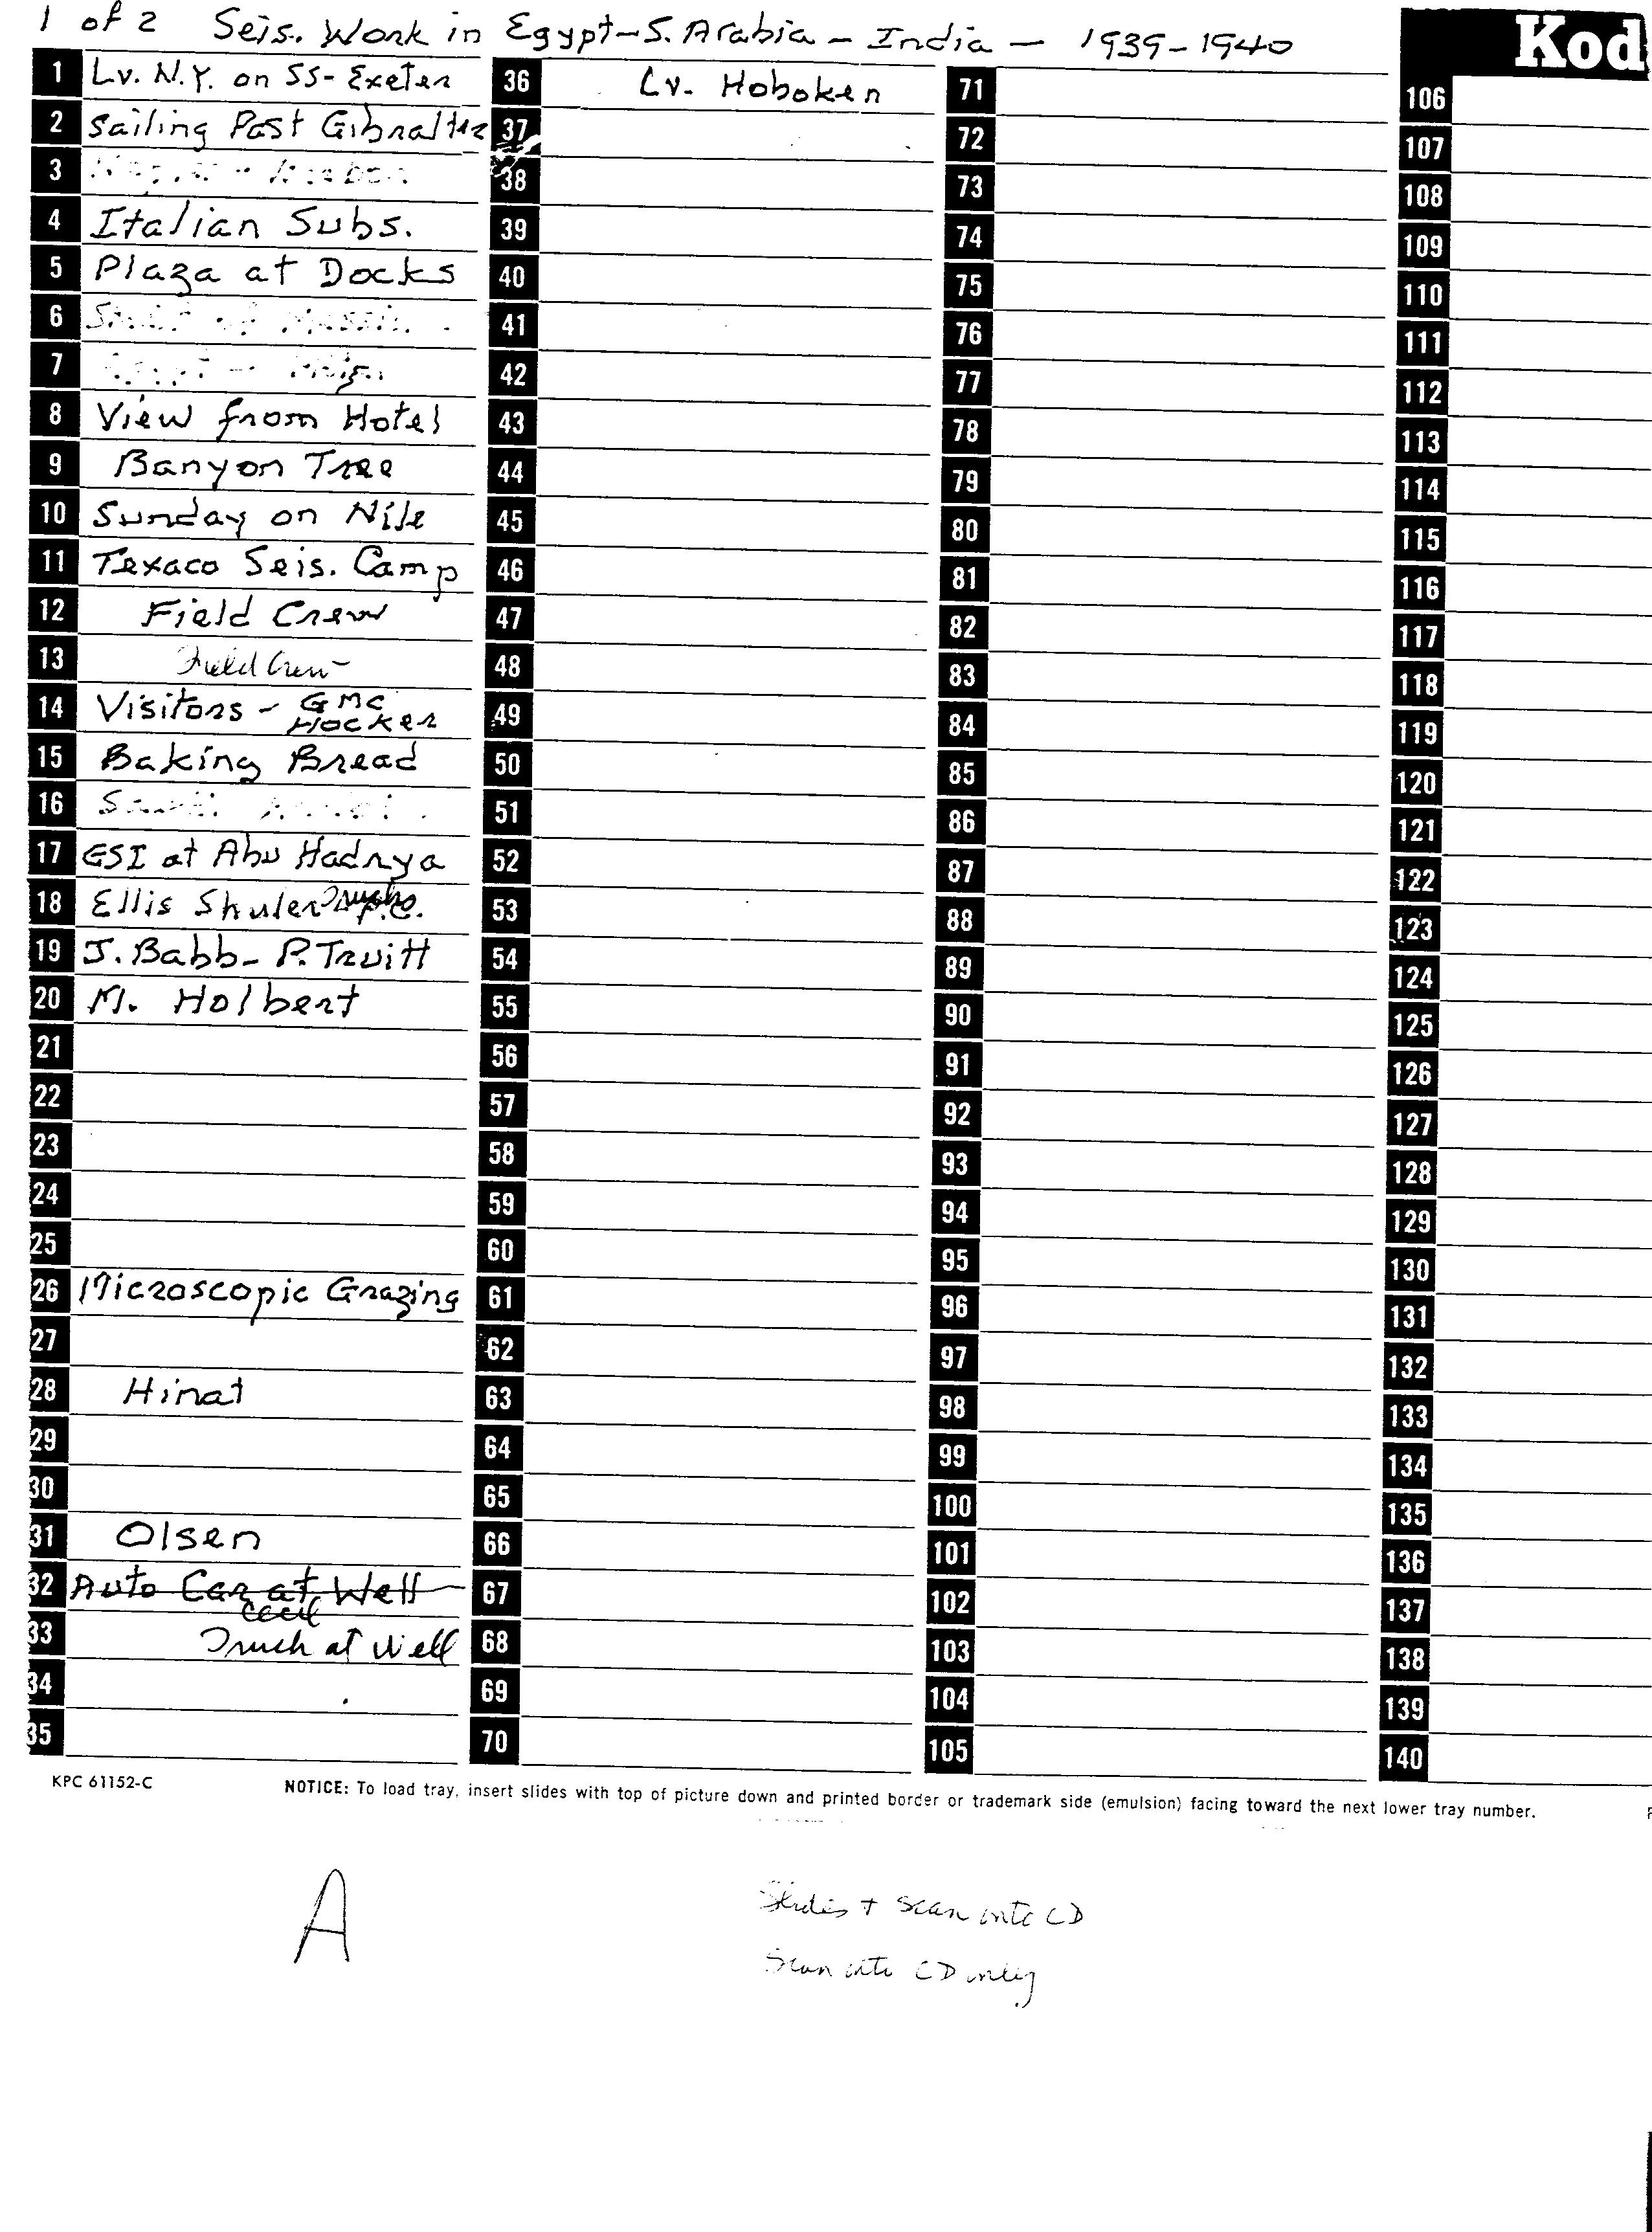 1 of 2 Seis. Work in Egypt-S. Arabia - India - 1939-1940
Kod
1 Lv. N.Y. on SS-Exeter
2 Sailing Past Gibralter
3
4 Italian Subs.
5 Plaza at Docks
6
7
8 View from Hotel
9 Banyon Tree
10 Sunday on Nile
11 Texaco Seis. Camp
12 Field Crew
13 Field Crew
14 Visitors - GMC
Hocker
15 Baking Bread
16
17 GSI at Abu Hadrya
18 Ellis Shuler P.C.
19 J. Babb - P. Truitt
20 M. Holbert
21
22
23
24
25
26 Microscopic Grazing
27
28 Hinat
29
30
31 Olsen
32 Auto Car at Well
Cecil
33 Truck at Well
34
35
36 Lv. Hoboken
37
38
39
40
41
42
43
44
45
46
47
48
49
50
51
52
53
54
55
56
57
58
59
60
61
62
63
64
65
66
67
68
69
70
71
72
73
74
75
76
77
78
79
80
81
82
83
84
85
86
87
88
89
90
91
92
93
94
95
96
97
98
99
100
101
102
103
104
105
106
107
108
109
110
111
112
113
114
115
116
117
118
119
120
121
122
123
124
125
126
127
128
129
130
131
132
133
134
135
136
137
138
139
140
KPC 61152-C
NOTICE: To load tray, insert slides with top of picture down and printed border or trademark side (emulsion) facing toward the next lower tray number.
A
Slides + scan into CD
Scan into CD only